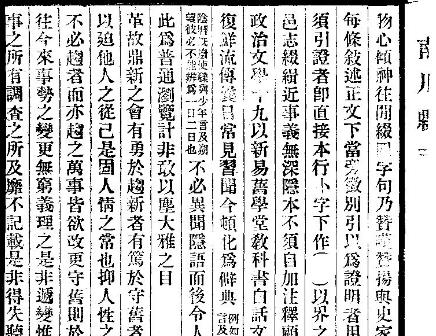 物心傾神往間綴
字句乃贊
贊揚與史家
每條敘述正文下當
徵別引以爲證明者用
須引證者卽直接本行
字下作（ ）以界之
邑志綴紺近事義無深隱本不須自加注釋顧
政治文學十九以新易舊學堂敎科書白話文
復鮮流傳
昌常見習聞今頓化爲僻典
例如
言及
少年言及
一日二日也
不必異聞隱語而後令人
此爲普通瀏覽計非敢以塵大雅之目
革故鼎新之會有勇於趨新者有篤於守舊者
以迫他人之從己是固人情之常也抑人性之
不必趨者而亦趨之萬事皆欲改更守舊則於
往今來事勢之變更無窮義理之是非遞變惟
事之所有調查之所及靡不記載是非得失聽